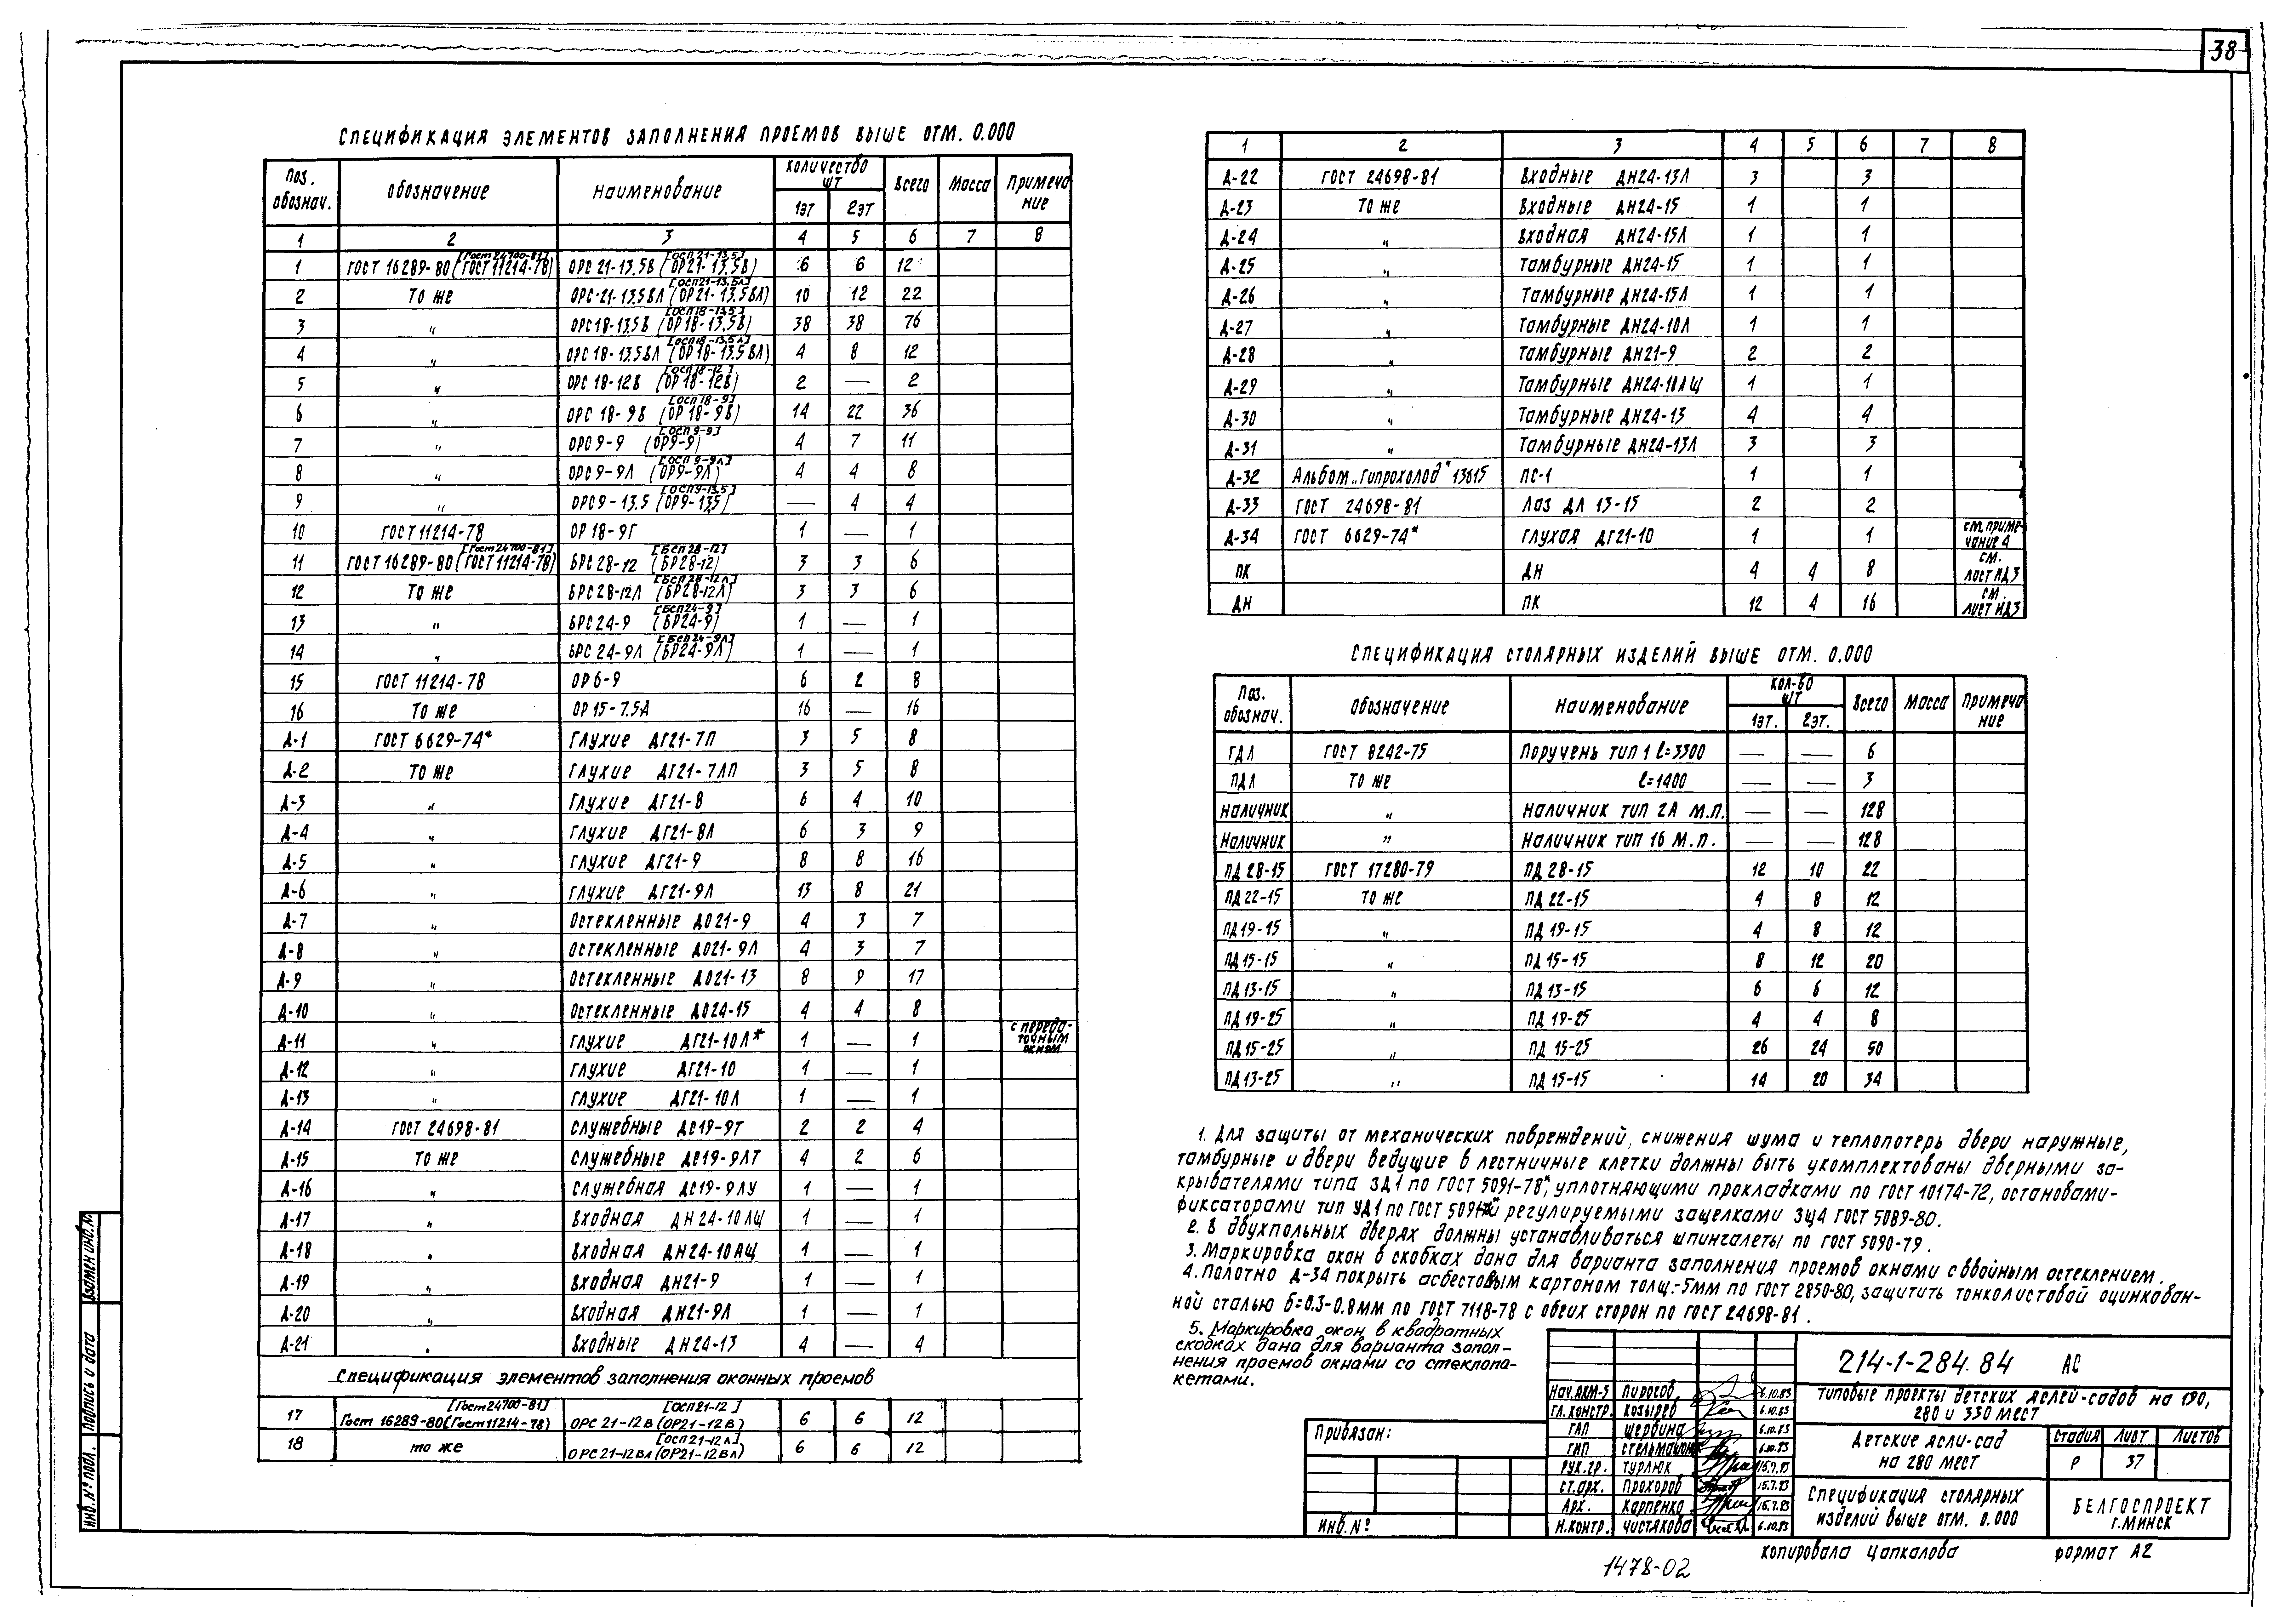 38
Спецификация элементов заполнения проемов выше отм. 0.000
Поз. обознач. | Обозначение | Наименование | Количество шт 1эт 2эт | Всего | Масса | Примечание
1 2 3 4 5 6 7 8
1 ГОСТ 16289-80 [Гост 24700-81] (ГОСТ 11214-78) ОРС 21-13.5В [ОСП 21-13.5] (ОР21-13.5В) 6 6 12
2 То же ОРС-21-13.5ВЛ [ОСП21-13.5Л] (ОР21-13.5ВЛ) 10 12 22
3 " ОРС18-13.5В [ОСП18-13.5] (ОР18-13.5В) 38 38 76
4 " ОРС 18-13.5ВЛ [ОСП18-13.5Л] (ОР18-13.5ВЛ) 4 8 12
5 " ОРС 18-12В [ОСП 18-12] (ОР18-12В) 2 — 2
6 " ОРС 18-9В [ОСП 18-9] (ОР18-9В) 14 22 36
7 " ОРС 9-9 [ОСП 9-9] (ОР9-9) 4 7 11
8 " ОРС 9-9Л [ОСП 9-9Л] (ОР9-9Л) 4 4 8
9 " ОРС9-13.5 [ОСП9-13.5] (ОР9-13.5) — 4 4
10 ГОСТ 11214-78 ОР 18-9Г 1 — 1
11 ГОСТ 16289-80 [Гост 24700-81] (ГОСТ 11214-78) БРС 28-12 [БСП 28-12] (БР28-12) 3 3 6
12 То же БРС28-12Л [БСП 28-12Л] (БР28-12Л) 3 3 6
13 " БРС 24-9 [БСП24-9] (БР24-9) 1 — 1
14 " БРС 24-9Л [БСП 24-9Л] (БР24-9Л) 1 — 1
15 ГОСТ 11214-78 ОР 6-9 6 2 8
16 То же ОР 15-7.5А 16 — 16
Д-1 ГОСТ 6629-74* Глухие ДГ21-7П 3 5 8
Д-2 То же Глухие ДГ21-7ЛП 3 5 8
Д-3 " Глухие ДГ21-8 6 4 10
Д-4 " Глухие ДГ21-8Л 6 3 9
Д-5 " Глухие ДГ21-9 8 8 16
Д-6 " Глухие ДГ21-9Л 13 8 21
Д-7 " Остекленные ДО21-9 4 3 7
Д-8 " Остекленные ДО21-9Л 4 3 7
Д-9 " Остекленные ДО21-13 8 9 17
Д-10 " Остекленные ДО24-15 4 4 8
Д-11 " Глухие ДГ21-10Л* 1 — 1 с передаточным окном
Д-12 " Глухие ДГ21-10 1 — 1
Д-13 " Глухие ДГ21-10Л 1 — 1
Д-14 ГОСТ 24698-81 Служебные ДС19-9Т 2 2 4
Д-15 То же Служебные ДС19-9ЛТ 4 2 6
Д-16 " Служебная ДС19-9ЛУ 1 — 1
Д-17 " Входная ДН24-10ЛЩ 1 — 1
Д-18 " Входная ДН24-10АЩ 1 — 1
Д-19 " Входная ДН21-9 1 — 1
Д-20 " Входная ДН21-9Л 1 — 1
Д-21 " Входные ДН24-13 4 — 4
Спецификация элементов заполнения оконных проемов
17 Гост 16289-80 [Гост 24700-81] (Гост 11214-78) ОРС 21-12В [ОСП21-12] (ОР21-12В) 6 6 12
18 то же ОРС 21-12ВЛ [ОСП21-12Л] (ОР21-12ВЛ) 6 6 12
1 2 3 4 5 6 7 8
Д-22 ГОСТ 24698-81 Входные ДН24-13Л 3 3
Д-23 То же Входные ДН24-15 1 1
Д-24 " Входная ДН24-15Л 1 1
Д-25 " Тамбурные ДН24-15 1 1
Д-26 " Тамбурные ДН24-15Л 1 1
Д-27 " Тамбурные ДН24-10Л 1 1
Д-28 " Тамбурные ДН21-9 2 2
Д-29 " Тамбурные ДН24-10ЛЩ 1 1
Д-30 " Тамбурные ДН24-13 4 4
Д-31 " Тамбурные ДН24-13Л 3 3
Д-32 Альбом „Гипрохолод" 13615 ПС-1 1 1
Д-33 ГОСТ 24698-81 Лаз ДЛ 13-15 2 2
Д-34 ГОСТ 6629-74* Глухая ДГ21-10 1 1 см. примечание 4
ПК ДН 4 4 8 см. лист ИДЗ
ДН ПК 12 4 16 см. лист ИДЗ
Спецификация столярных изделий выше отм. 0.000
Поз. обознач. | Обозначение | Наименование | Кол-во шт 1эт. 2эт. | Всего | Масса | Примечание
ГДЛ ГОСТ 8242-75 Поручень тип 1 ℓ=3300 — — 6
ПДЛ То же ℓ=1400 — — 3
Наличник " Наличник тип 2А м.п. — — 128
Наличник " Наличник тип 1б м.п. — — 128
ПД 28-15 ГОСТ 17280-79 ПД 28-15 12 10 22
ПД 22-15 То же ПД 22-15 4 8 12
ПД 19-15 " ПД 19-15 4 8 12
ПД 15-15 " ПД 15-15 8 12 20
ПД 13-15 " ПД 13-15 6 6 12
ПД 19-25 " ПД 19-25 4 4 8
ПД 15-25 " ПД 15-25 26 24 50
ПД 13-25 " ПД 15-15 14 20 34
1. Для защиты от механических повреждений, снижения шума и теплопотерь двери наружные,
тамбурные и двери ведущие в лестничные клетки должны быть укомплектованы дверными за-
крывателями типа ЗД1 по ГОСТ 5091-78*, уплотняющими прокладками по ГОСТ 10174-72, остановами-
фиксаторами тип УД1 по ГОСТ и регулируемыми защелками ЗЩ4 ГОСТ 5089-80.
2. В двухпольных дверях должны устанавливаться шпингалеты по ГОСТ 5090-79.
3. Маркировка окон в скобках дана для варианта заполнения проемов окнами с двойным остеклением.
4. Полотно Д-34 покрыть асбестовым картоном толщ.-5мм по ГОСТ 2850-80, защитить тонколистовой оцинкован-
ной сталью б=0.3-0.8мм по ГОСТ 7118-78 с обеих сторон по ГОСТ 24698-81.
5. Маркировка окон в квадратных
скобках дана для варианта запол-
нения проемов окнами со стеклопа-
кетами.
Привязан:
Инв.№
Нач.АКМ-5 Пирогов 6.10.83
Гл.констр. Козырев 6.10.83
ГАП Щербина 6.10.83
ГИП 6.10.83
Рук.гр. Турлюк 15.7.83
Ст.арх. Прохоров 15.7.83
Арх. Карпенко 15.7.83
Н.контр. Чистякова 6.10.83
214-1-284.84 АС
Типовые проекты детских яслей-садов на 190,
280 и 330 мест
Детские ясли-сад
на 280 мест
Стадия Лист Листов
Р 37
Спецификация столярных
изделий выше отм. 0.000
БЕЛГОСПРОЕКТ
г.Минск
Копировала Цапкалова формат А2
1478-02
Взамен инв.№
Подпись и дата
Инв.№ подл.